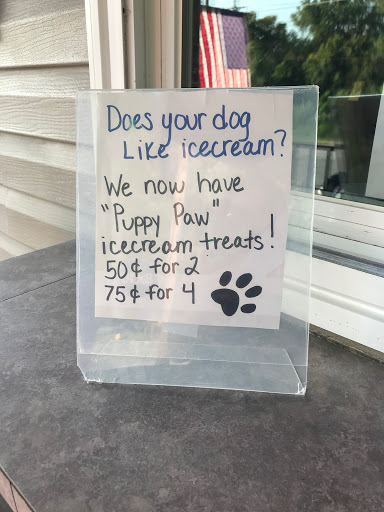 Does your dog
Like icecream?
We now have
"Puppy Paw"
icecream treats!
50¢ for 2
75¢ for 4